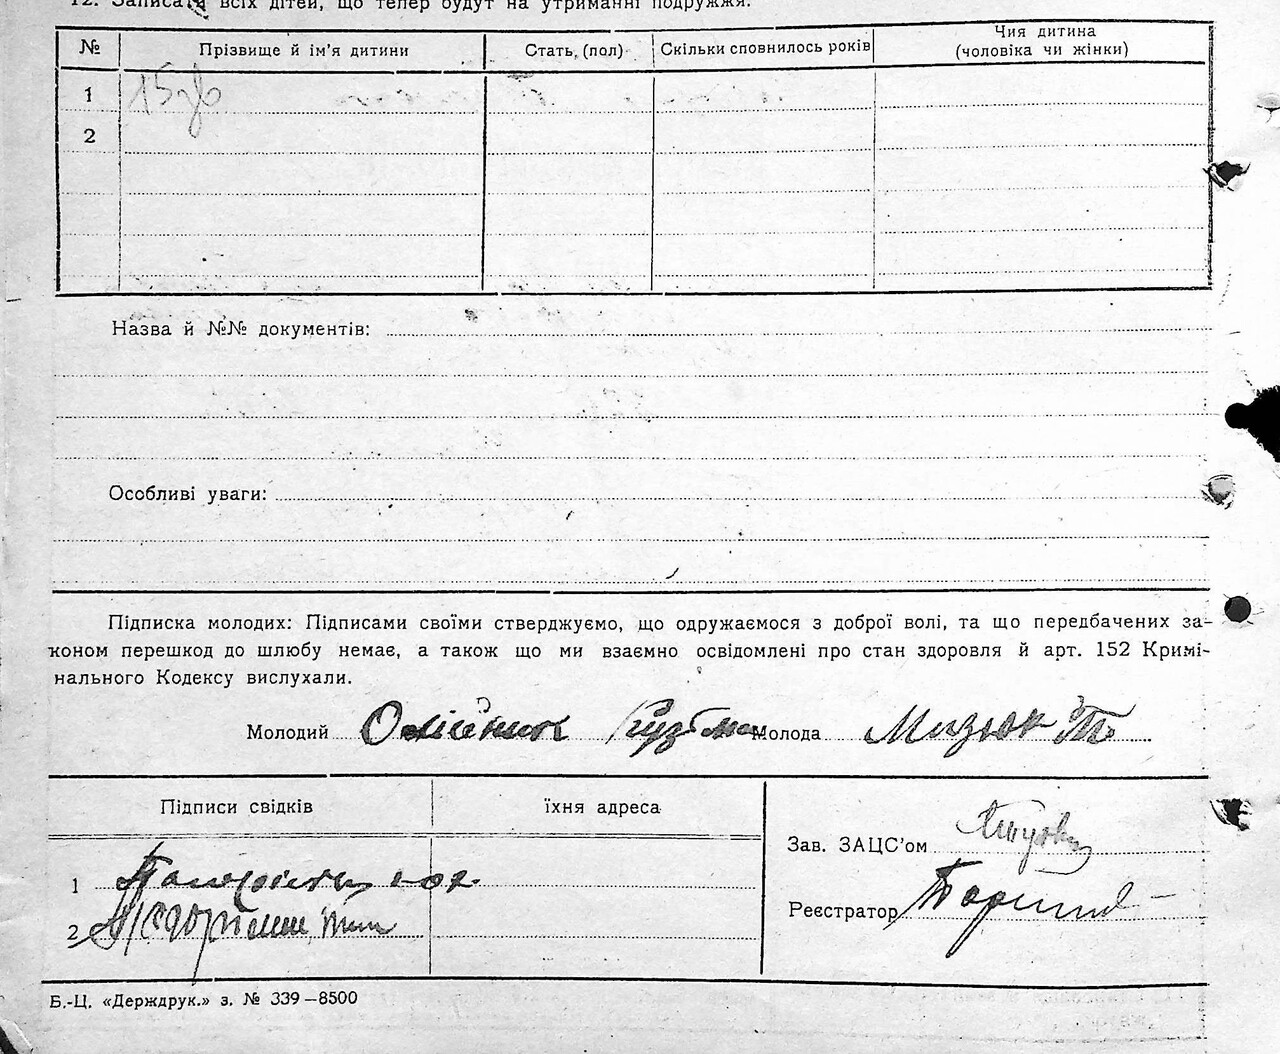 12. Записати всіх дітей, що тепер будут на утриманні подружжя.
№ Прізвище й ім'я дитини Стать, (пол) Скільки сповнилось років Чия дитина (чоловіка чи жінки)
1
2
Назва й №№ документів:
Особливі уваги:
Підписка молодих: Підписами своїми стверджуємо, що одружаємося з доброї волі, та що передбачених за-
коном перешкод до шлюбу немає, а також що ми взаємно освідомлені про стан здоровля й арт. 152 Кримі-
нального Кодексу вислухали.
Молодий Олійник Кузьма Молода Мизюк Т
Підписи свідків їхня адреса
Зав. ЗАЦС'ом
1
Реєстратор
2
Б.-Ц. «Держдрук.» з. № 339–8500